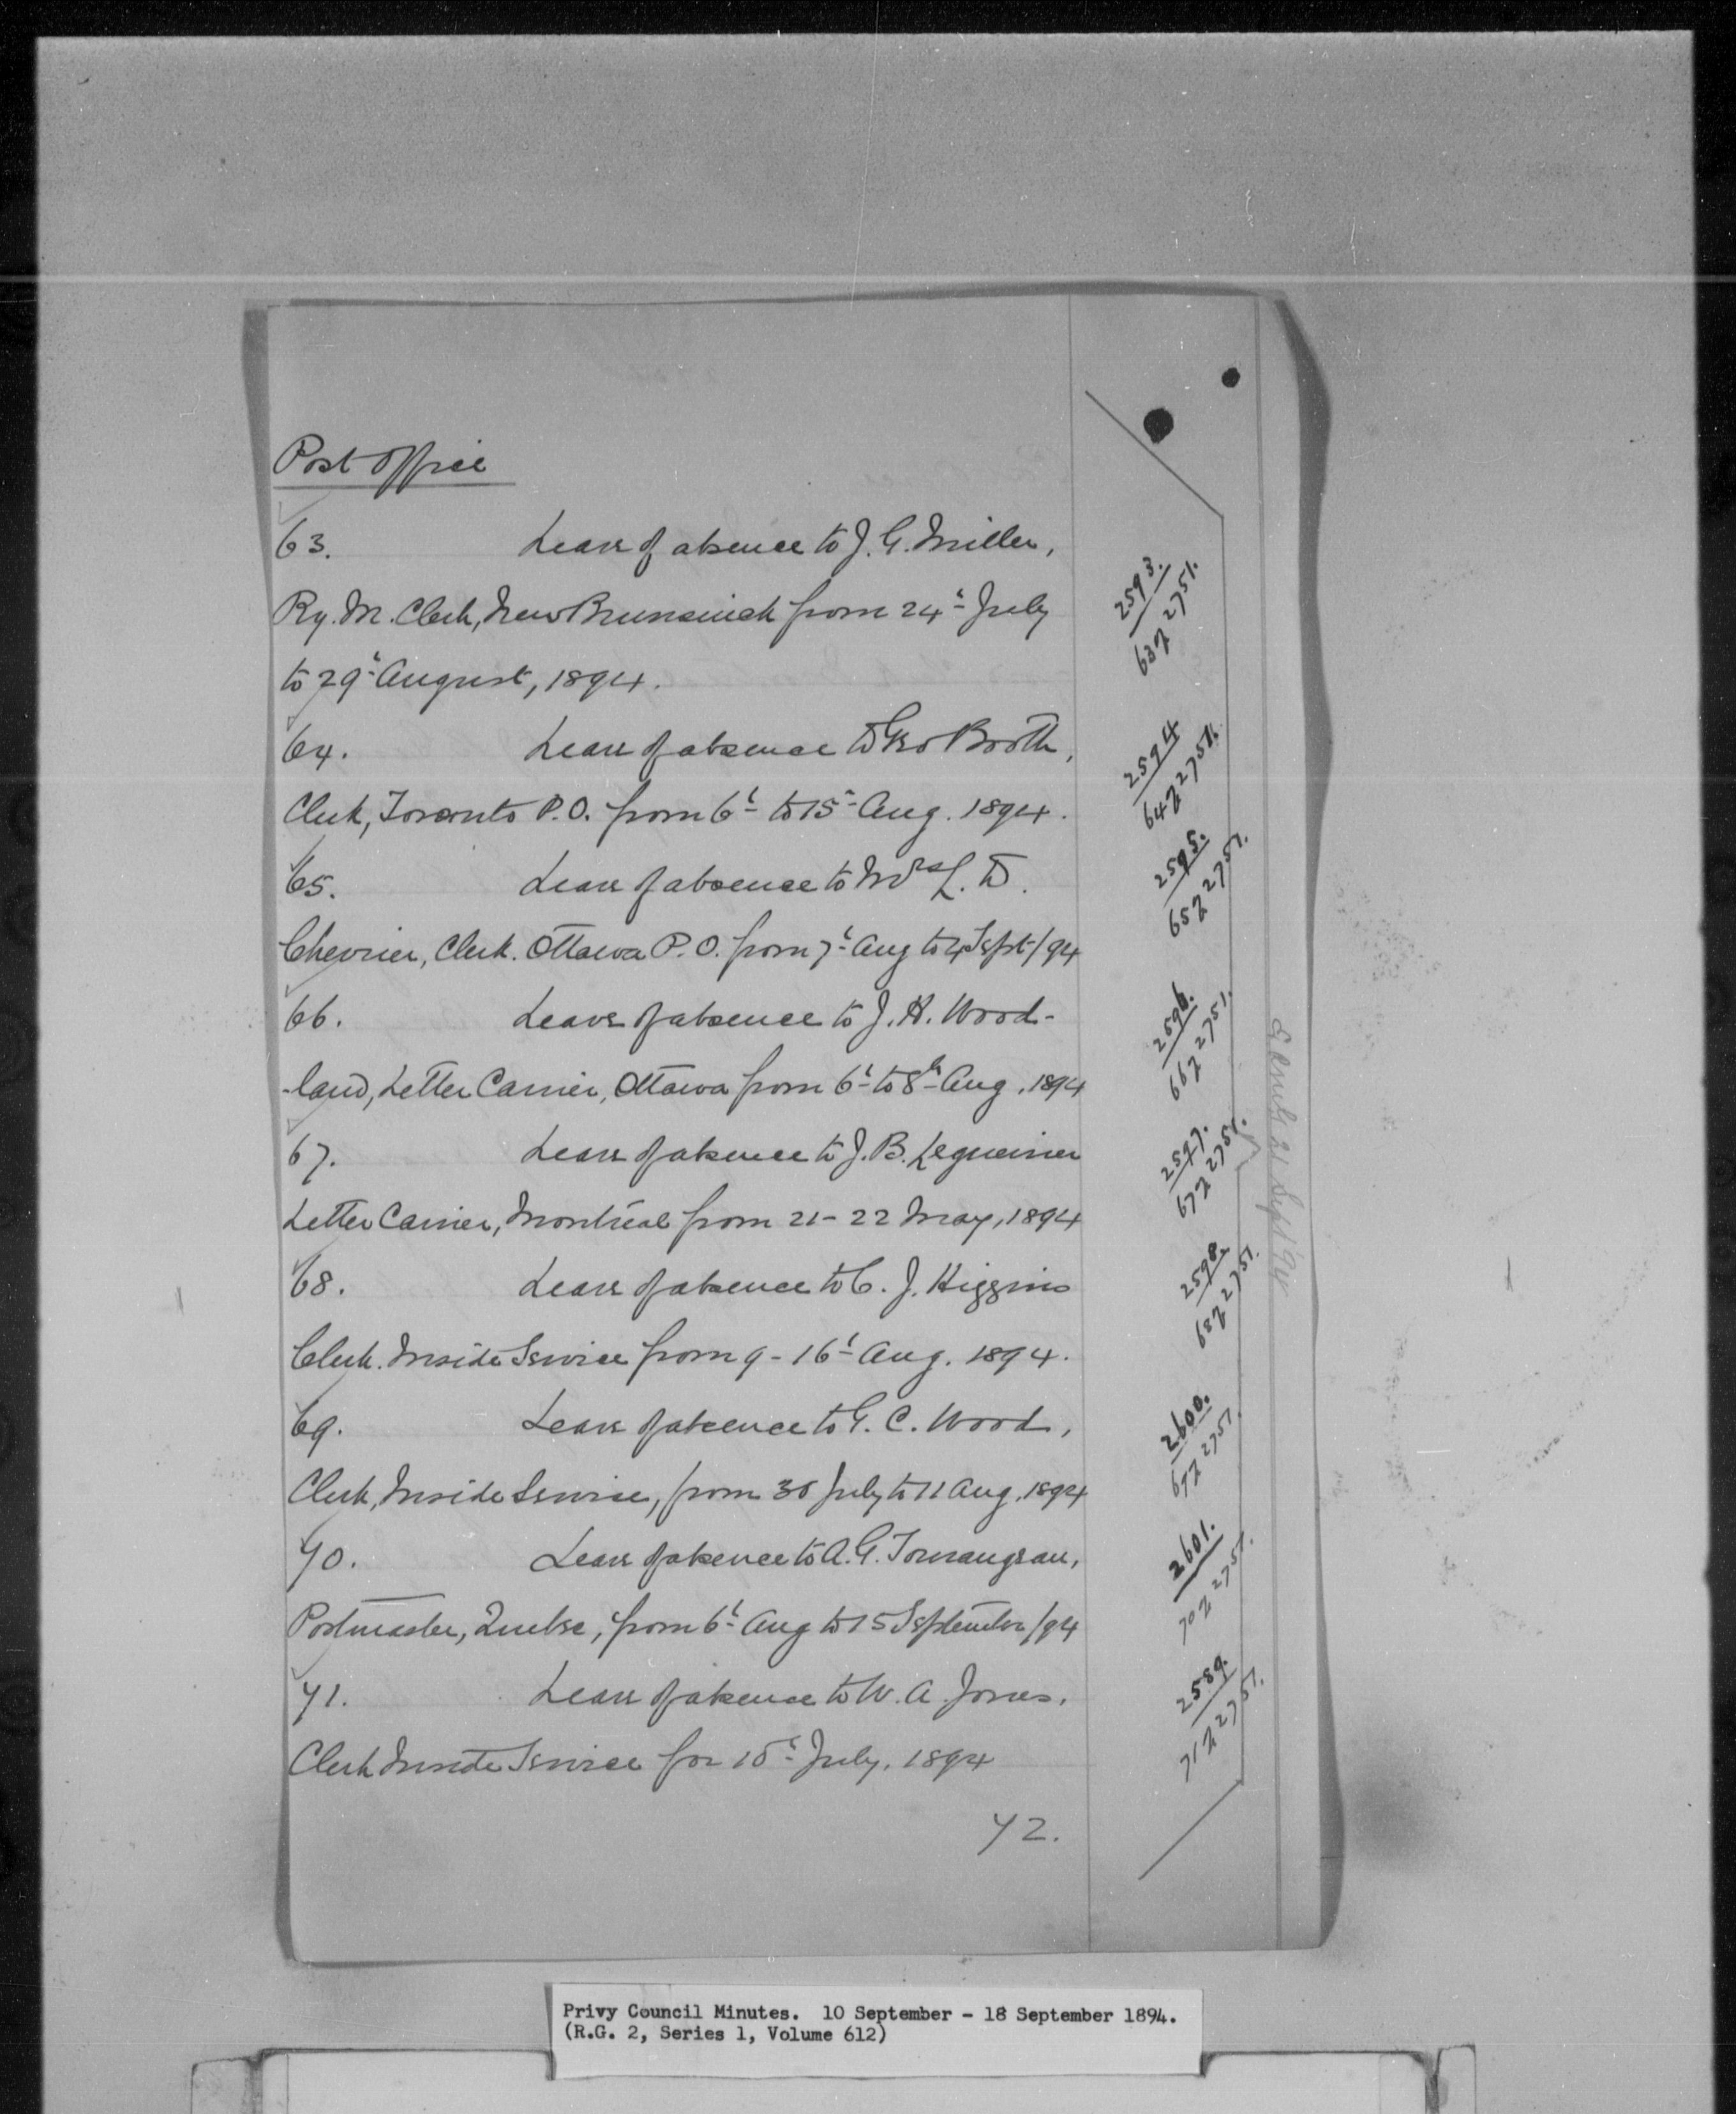 Post Office
63. Leave of absence to J. G. Miller,
Ry. M. Clerk, New Brunswick from 24th July
to 29th August, 1894.
2593.
63 2751.
64. Leave of absence to Geo Booth,
Clerk, Toronto P.O. from 6th to 15th Aug. 1894.
2594
64 2751.
65. Leave of absence to Mrs L. D.
Chevrier, Clerk. Ottawa P.O. from 7th Aug to 4 Sept/94
2595.
65 2751.
66. Leave of absence to J. H. Wood-
-land, Letter Carrier, Ottawa from 6th to 8th Aug. 1894
2596.
66 2751.
67. Leave of absence to J. B.
Letter Carrier, Montreal from 21-22 May, 1894
2597.
67 2751.
68. Leave of absence to C. J. Higgins
Clerk. Inside Service from 9-16th Aug. 1894.
2598.
68 2751.
69. Leave of absence to G. C. Wood,
Clerk, Inside Service, from 30 July to 11 Aug. 1894
2600.
2751.
70. Leave of absence to A. G. Tourangeau,
Postmaster, Quebec, from 6th Aug to 15 September/94
2601.
70 2751.
71. Leave of absence to W. A. Jones.
Clerk Inside Service for 10th July. 1894
2589.
71 2751.
72.
21 Sept 94
Privy Council Minutes. 10 September - 18 September 1894.
(R.G. 2, Series 1, Volume 612)